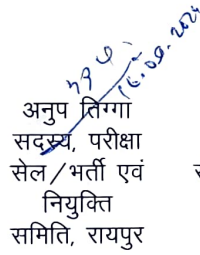 अनुप तिग्गा
सदस्य, परीक्षा
सेल/भर्ती एवं
नियुक्ति
समिति, रायपुर